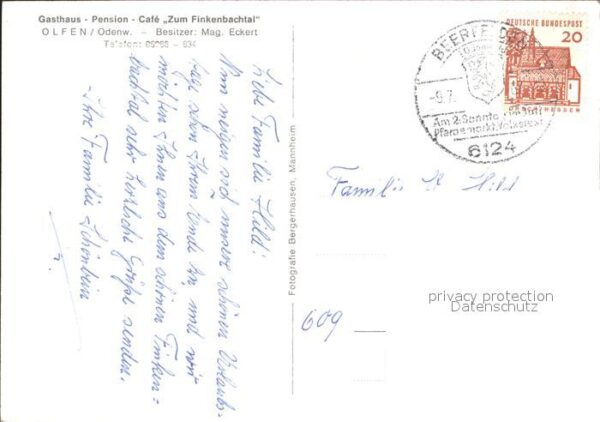 Gasthaus - Pension - Café „Zum Finkenbachtal"
OLFEN / Odenw. - Besitzer: Mag. Eckert
Telefon: 06068 - 634
Liebe Familie Hild!
Nun neigen sich unsere schönen Urlaubs-
tage schon Ihrem Ende zu, und wir
möchten Ihnen aus dem schönen Finken=
bachtal sehr herzliche Grüße senden.
- Ihre Familie Schönbein
Fotografie Bergerhausen, Mannheim
BEERFELDEN
-9.7.
Am 2. Sonntag
Pferdemarkt, Volksfest
6124
DEUTSCHE BUNDESPOST
20
Familie Hild
609
privacy protection
Datenschutz